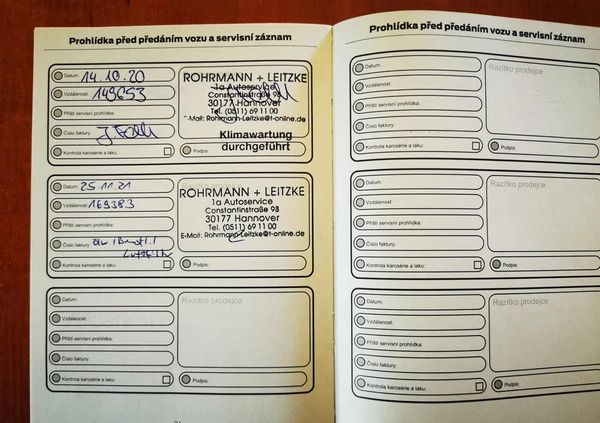 Prohlídka před předáním vozu a servisní záznam
Datum: 14.10.20
Vzdálenost: 149653
Příští servisní prohlídka:
Číslo faktury:
Kontrola karosérie a laku:
ROHRMANN + LEITZKE
1a Autoservice
Constantinstraße 98
30177 Hannover
Tel. (0511) 69 11 00
E-Mail: Rohrmann-Leitzke@t-online.de
Klimawartung
durchgeführt
Podpis:
Datum: 25.11.21
Vzdálenost: 169383
Příští servisní prohlídka:
Číslo faktury:
Kontrola karosérie a laku:
ROHRMANN + LEITZKE
1a Autoservice
Constantinstraße 98
30177 Hannover
Tel. (0511) 69 11 00
E-Mail: Rohrmann-Leitzke@t-online.de
Podpis:
Datum:
Vzdálenost:
Příští servisní prohlídka:
Číslo faktury:
Kontrola karosérie a laku:
Razítko prodejce
Podpis:
Prohlídka před předáním vozu a servisní záznam
Datum:
Vzdálenost:
Příští servisní prohlídka:
Číslo faktury:
Kontrola karosérie a laku:
Razítko prodejce
Podpis:
Datum:
Vzdálenost:
Příští servisní prohlídka:
Číslo faktury:
Kontrola karosérie a laku:
Razítko prodejce
Podpis:
Datum:
Vzdálenost:
Příští servisní prohlídka:
Číslo faktury:
Kontrola karosérie a laku:
Razítko prodejce
Podpis: